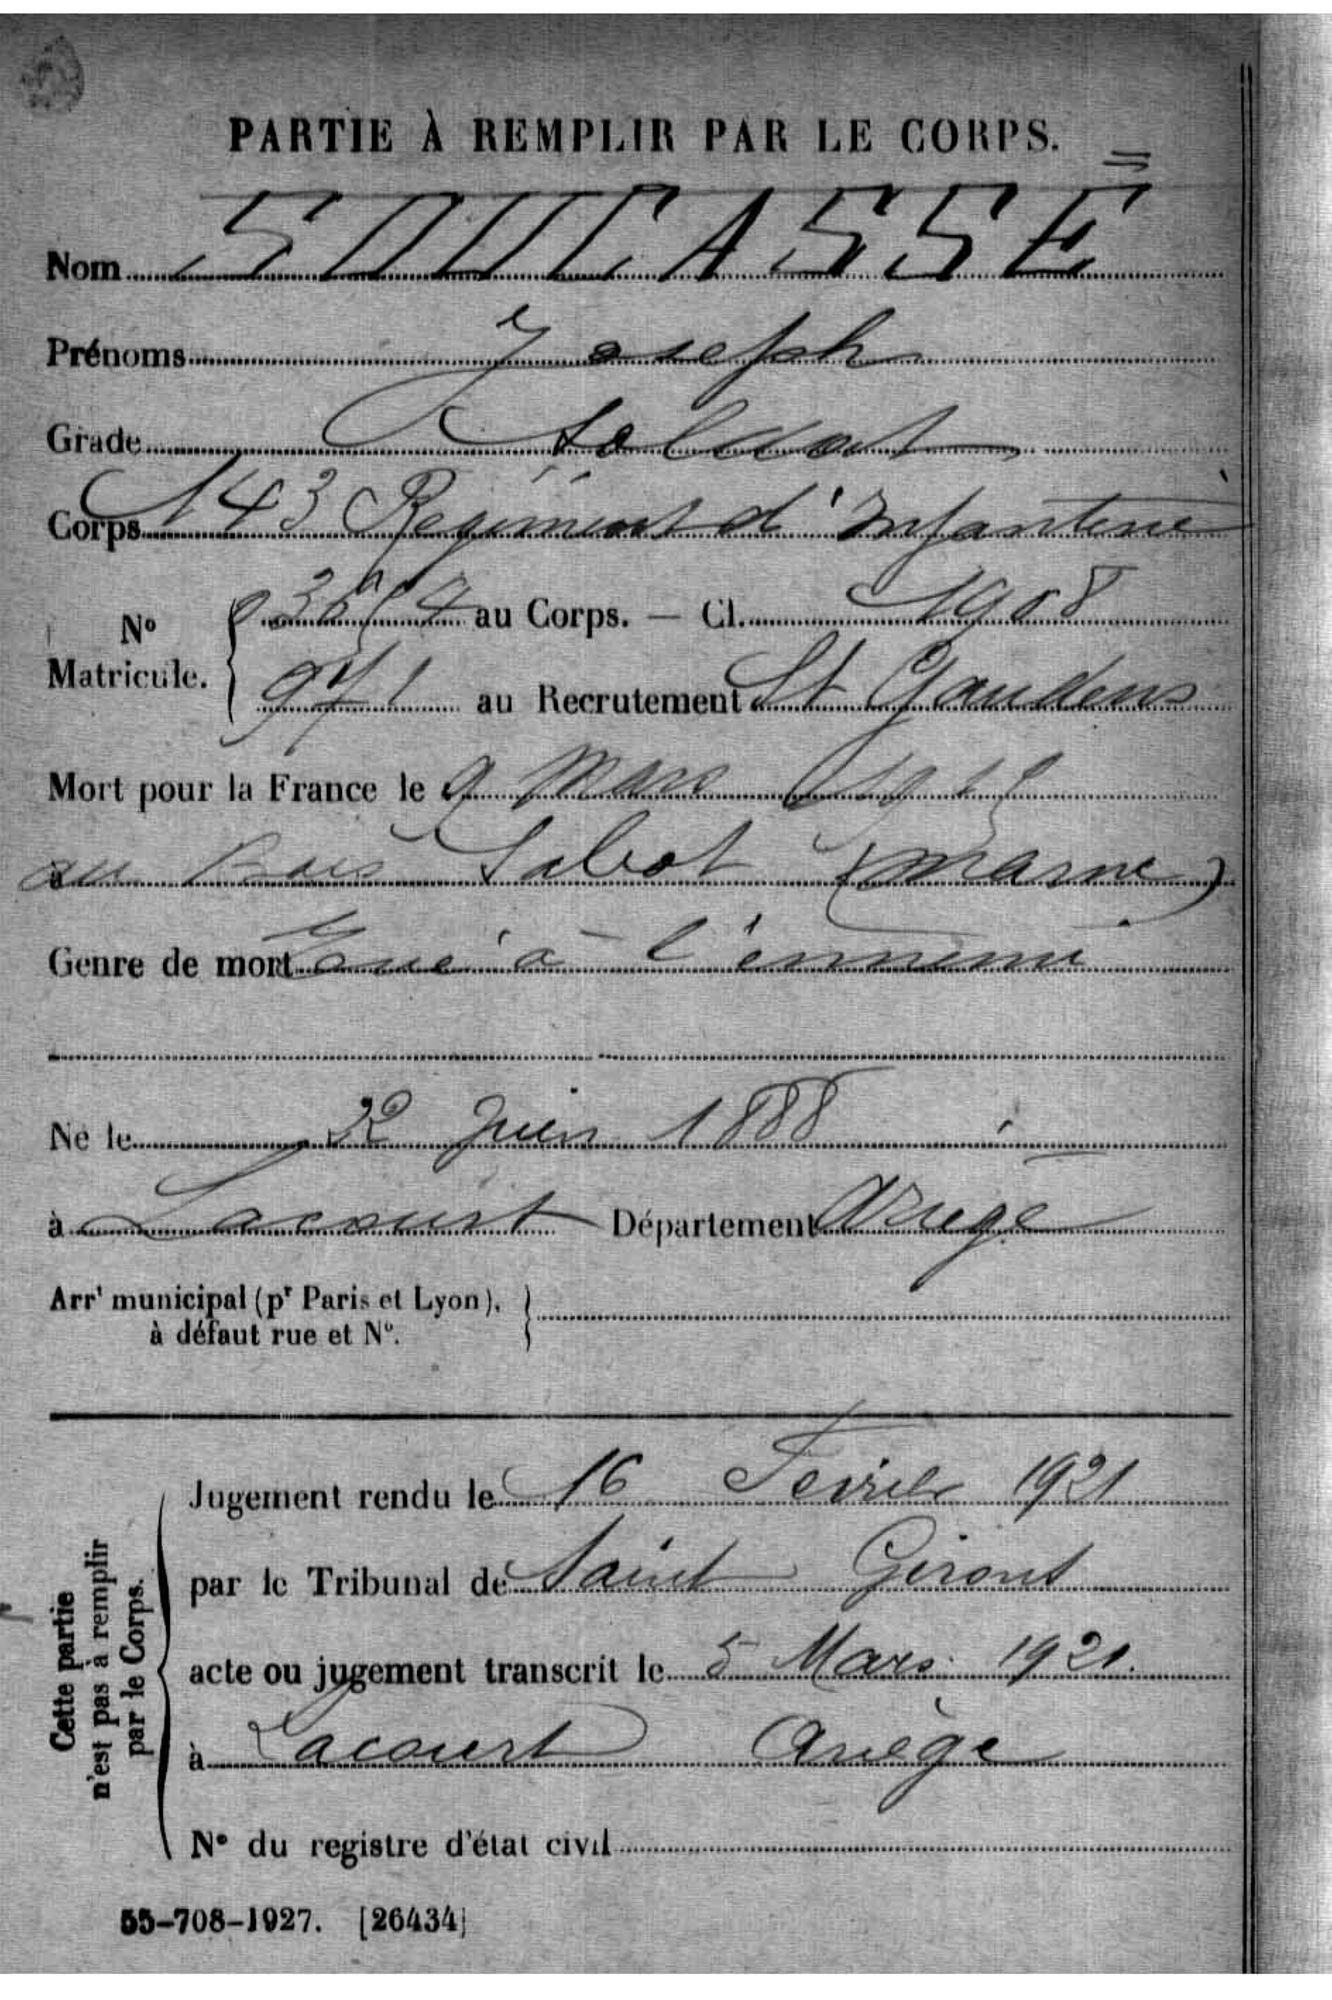 PARTIE À REMPLIR PAR LE CORPS.
Nom SOUCASSE
Prénoms Joseph
Grade Soldat
Corps 143 Régiment d'Infanterie
N° Matricule. au Corps. — Cl. 1908
971 au Recrutement St Gaudens
Mort pour la France le 9 Mars 1915
au Bois Sabot (Marne)
Genre de mort Tué à l'ennemi
Né le 22 Juin 1888
à Lacourt Département Ariège
Arrt municipal (pr Paris et Lyon),
à défaut rue et N°.
Cette partie
n'est pas à remplir
par le Corps.
Jugement rendu le 16 Février 1921
par le Tribunal de Saint Girons
acte ou jugement transcrit le 5 Mars 1921.
à Lacourt Ariège
N° du registre d'état civil
55-708-1927. [26434]